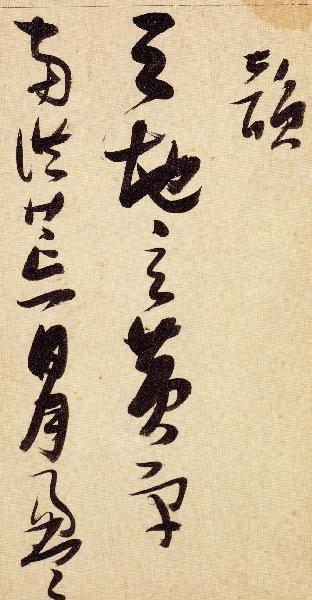 韻
天地玄黃宇
宙洪荒日月盈